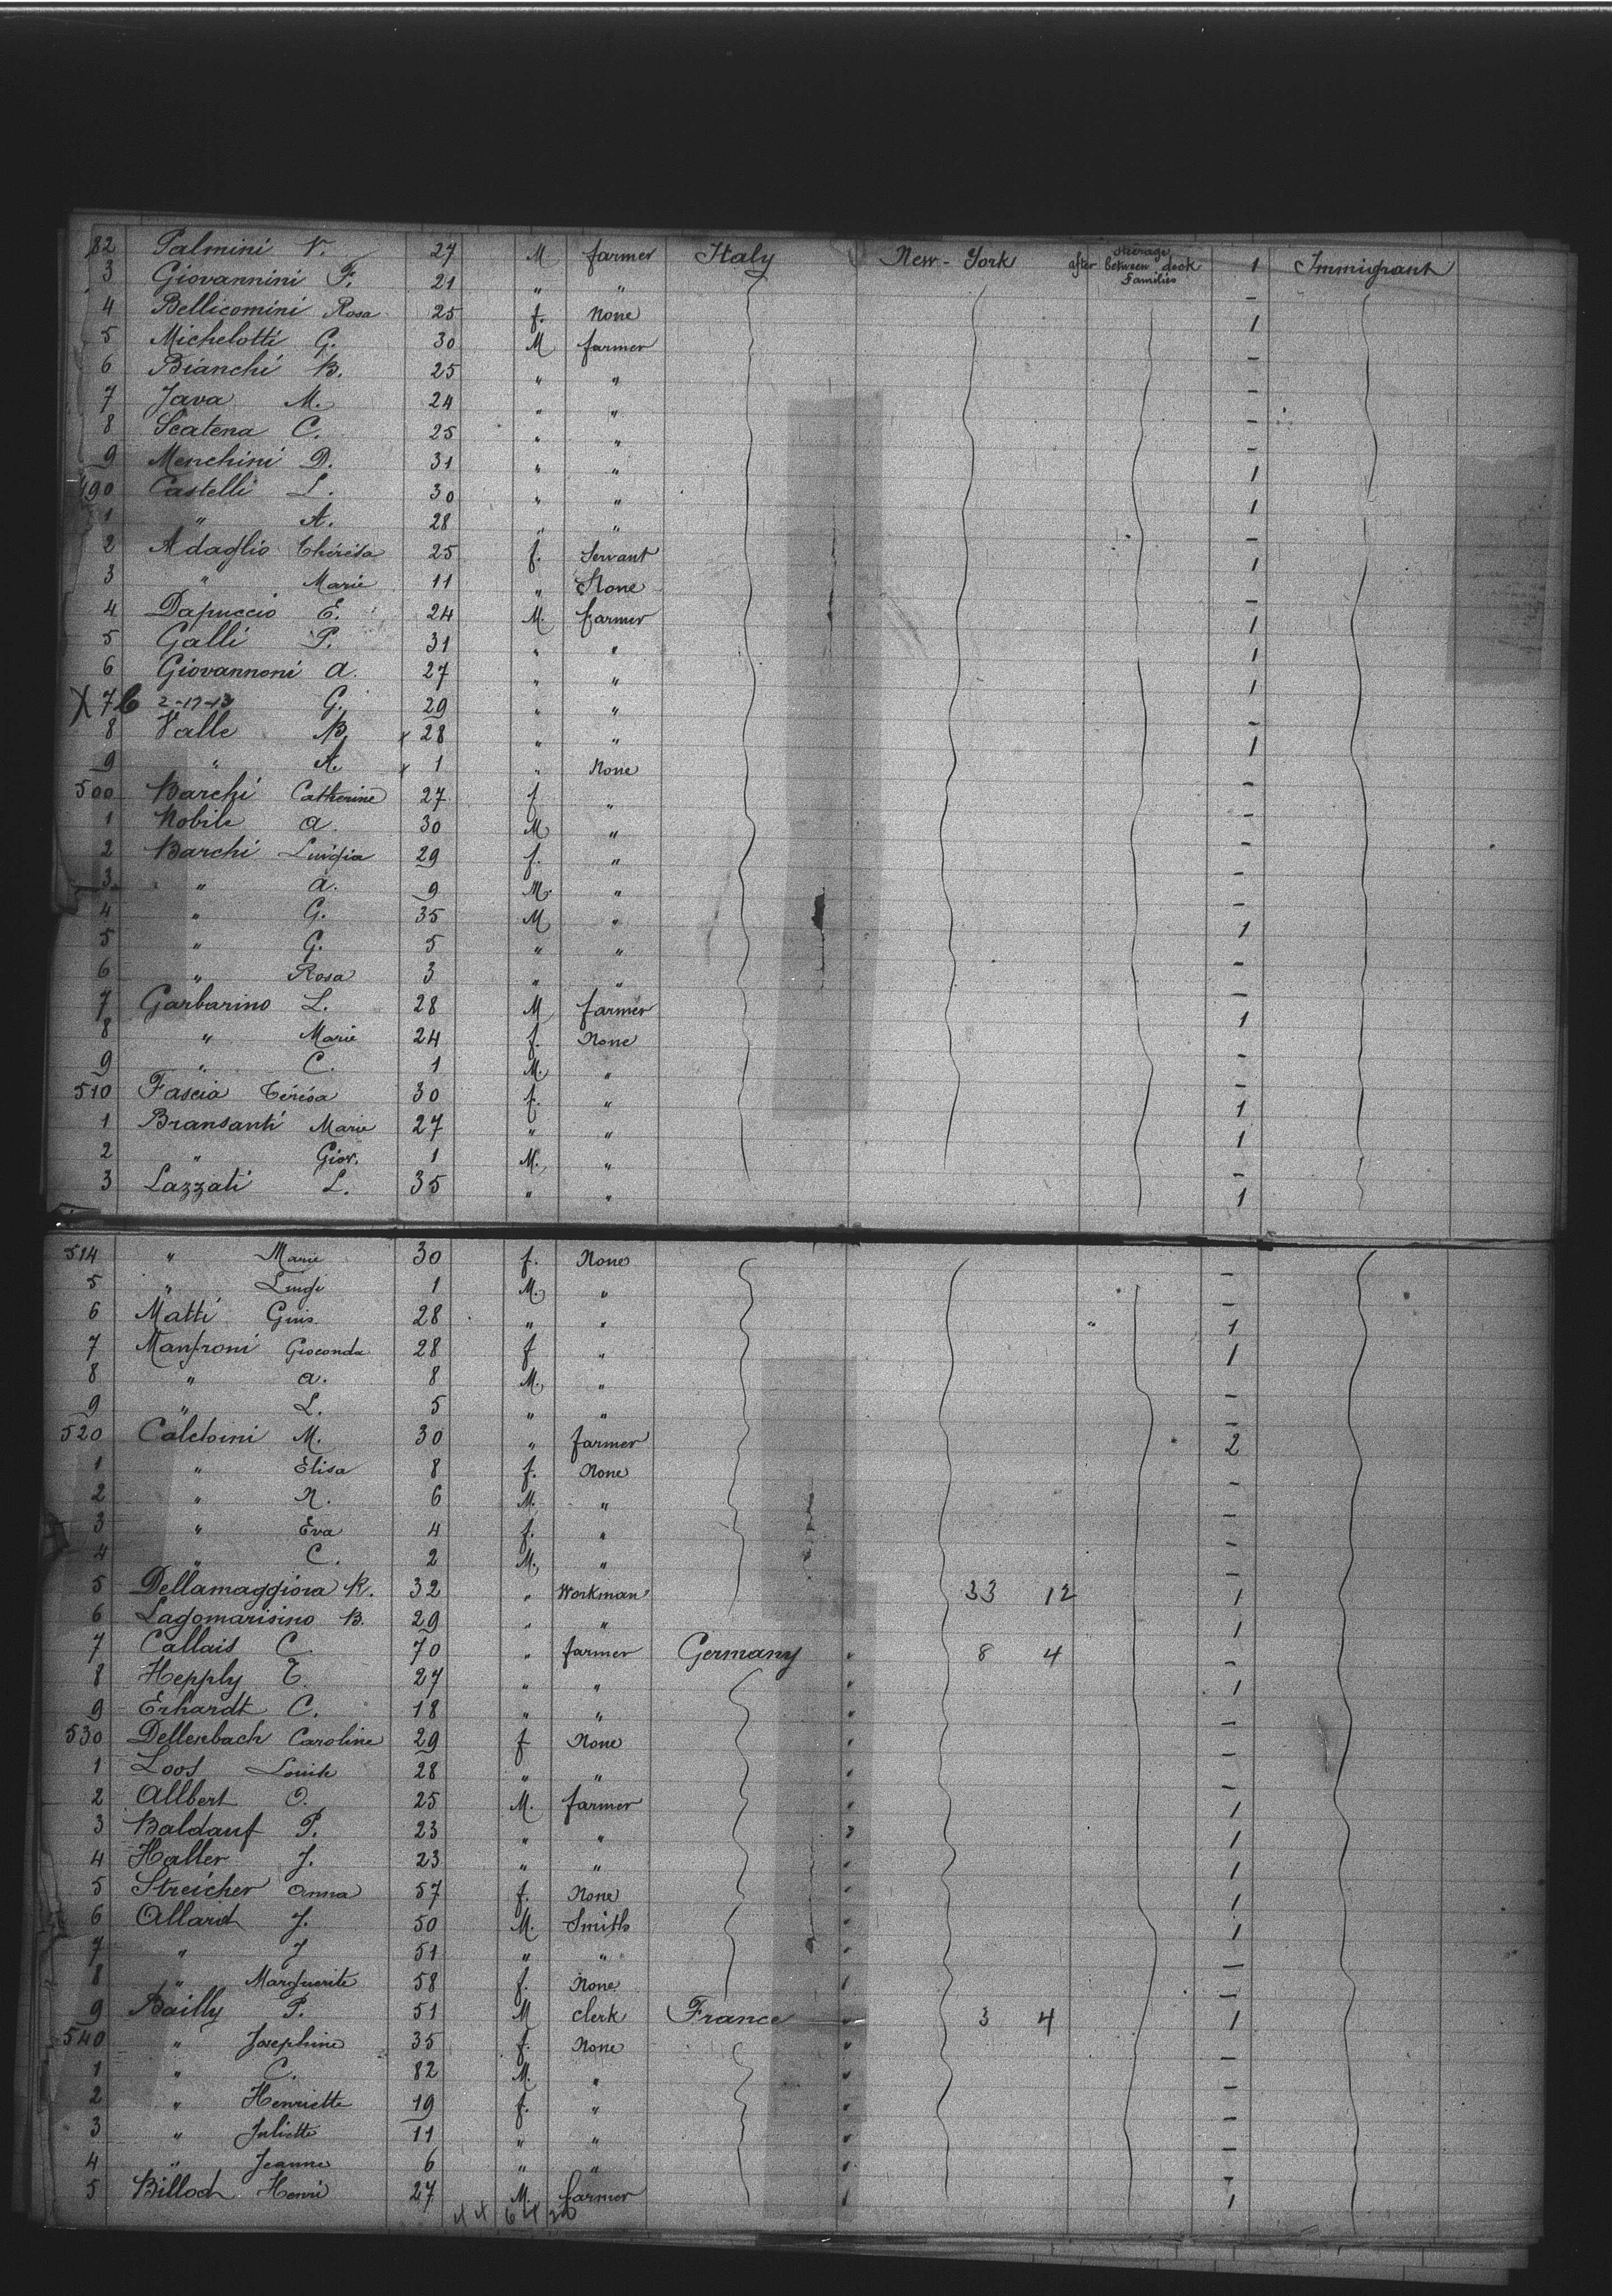 82 Palmini V. 27 M farmer Italy New-York after Steerage between deck Families 1 Immigrant
3 Giovannini F. 21 " " -
4 Bellicomini Rosa 25 f. None 1
5 Michelotti G. 30 M farmer -
6 Bianchi B. 25 " " -
7 Java M. 24 " " -
8 Scatena C. 25 " " -
9 Menchini D. 31 " " 1
490 Castelli L. 30 " " 1
1 " A. 28 " " -
2 Adaglio Thérésa 25 f. Servant 1
3 " Marie 11 " None -
4 Dapuccio E. 24 M. farmer 1
5 Galli P. 31 " " 1
6 Giovannoni A. 27 " " 1
X 7 C 2-17-13 G. 29 " " -
8 Valle B. x 28 " " 1
9 " A. x 1 " None -
500 Barchi Catherine 27 f " -
1 Nobile A. 30 M " -
2 Barchi Luigia 29 f. " -
3 " A. 9 M. " -
4 " G. 35 M " 1
5 " G. 5 " " -
6 " Rosa 3 " " -
7 Garbarino L. 28 M farmer 1
8 " Marie 24 f. None -
9 " C. 1 M. " -
510 Fascia Térésa 30 f. " 1
1 Bransanti Marie 27 " " 1
2 " Giov. 1 M. " -
3 Lazzati L. 35 " " 1
514 " Marie 30 f. None -
5 " Luigi 1 M. " -
6 Matti Gius 28 " " " 1
7 Manfroni Gioconda 28 f " 1
8 " A. 8 M. " -
9 " L. 5 " " -
520 M. 30 " farmer 2
1 " Elisa 8 f. None -
2 " N. 6 M. " -
3 " Eva 4 f. " -
4 " C. 2 M. " -
5 Dellamaggiora R. 32 " Workman 33 12 1
6 Lagomarisino B. 29 " " 1
7 Callais C. 70 " farmer Germany " 8 4 -
8 Hepply T. 27 " " " 1
9 Erhardt C. 18 " " " -
530 Dellenbach Caroline 29 f None " -
1 Loos 28 " " " -
2 Allbert O. 25 M. farmer " 1
3 Baldauf P. 23 " " " 1
4 Haller J. 23 " " " 1
5 Streicher Anna 57 f. None " 1
6 Allard J. 50 M. Smith " 1
7 " J 51 " " " -
8 " Marguerite 58 f. None " -
9 Bailly P. 51 M clerk France " 3 4 1
540 " Josephine 35 f. None " -
1 " C. 82 M. " " -
2 " Henriette 19 f. " " -
3 " Juliette 11 " " " -
4 " Jeanne 6 " " " -
5 Billod Henri 27 M. farmer " 1